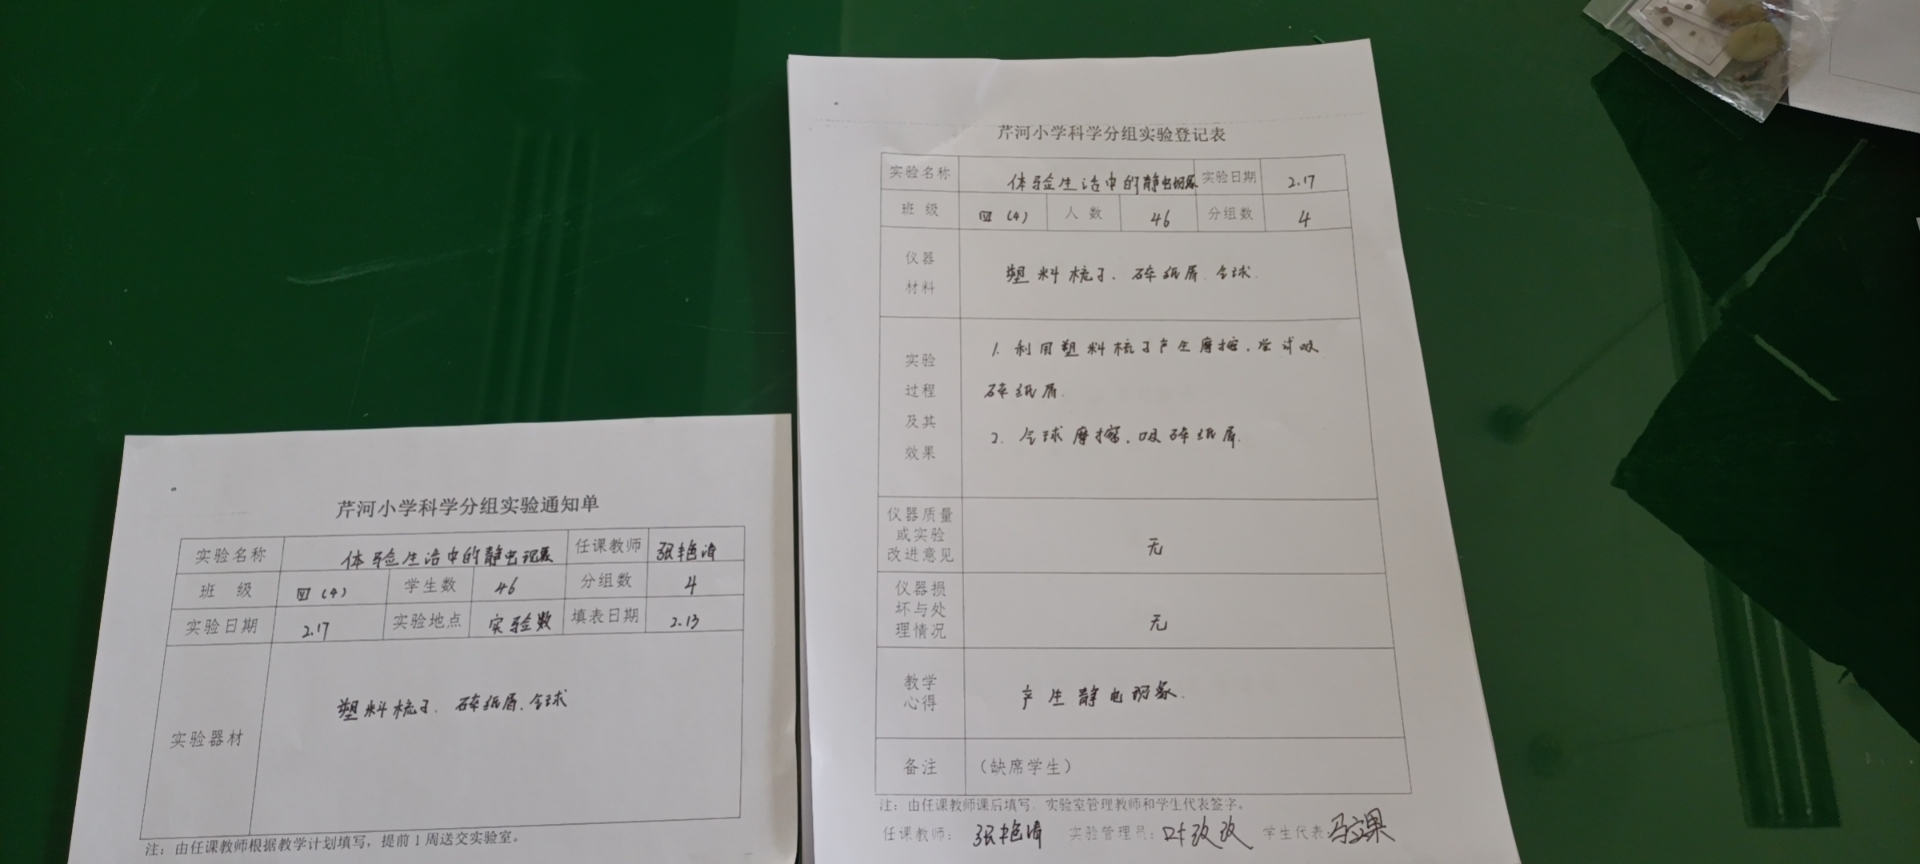 芹河小学科学分组实验通知单
实验名称 体验生活中的静电现象 任课教师 张艳
班 级 四(4) 学生数 46 分组数 4
实验日期 2.17 实验地点 实验 填表日期 2.13
实验器材 塑料梳子、碎纸屑、气球
注：由任课教师根据教学计划填写，提前1周送交实验室。
芹河小学科学分组实验登记表
实验名称 体验生活中的静电现象 实验日期 2.17
班 级 四(4) 人 数 46 分组数 4
仪器
材料
塑料梳子、碎纸屑、气球.
实验
过程
及其
效果
1. 利用塑料梳子产生摩擦，尝试吸
碎纸屑.
2. 气球摩擦，吸碎纸屑.
仪器质量
或实验
改进意见
无
仪器损
坏与处
理情况
无
教学
心得
产生静电现象.
备注 （缺席学生）
注：由任课教师课后填写，实验室管理教师和学生代表签字。
任课教师： 张艳 实验管理员：叶改改 学生代表：马